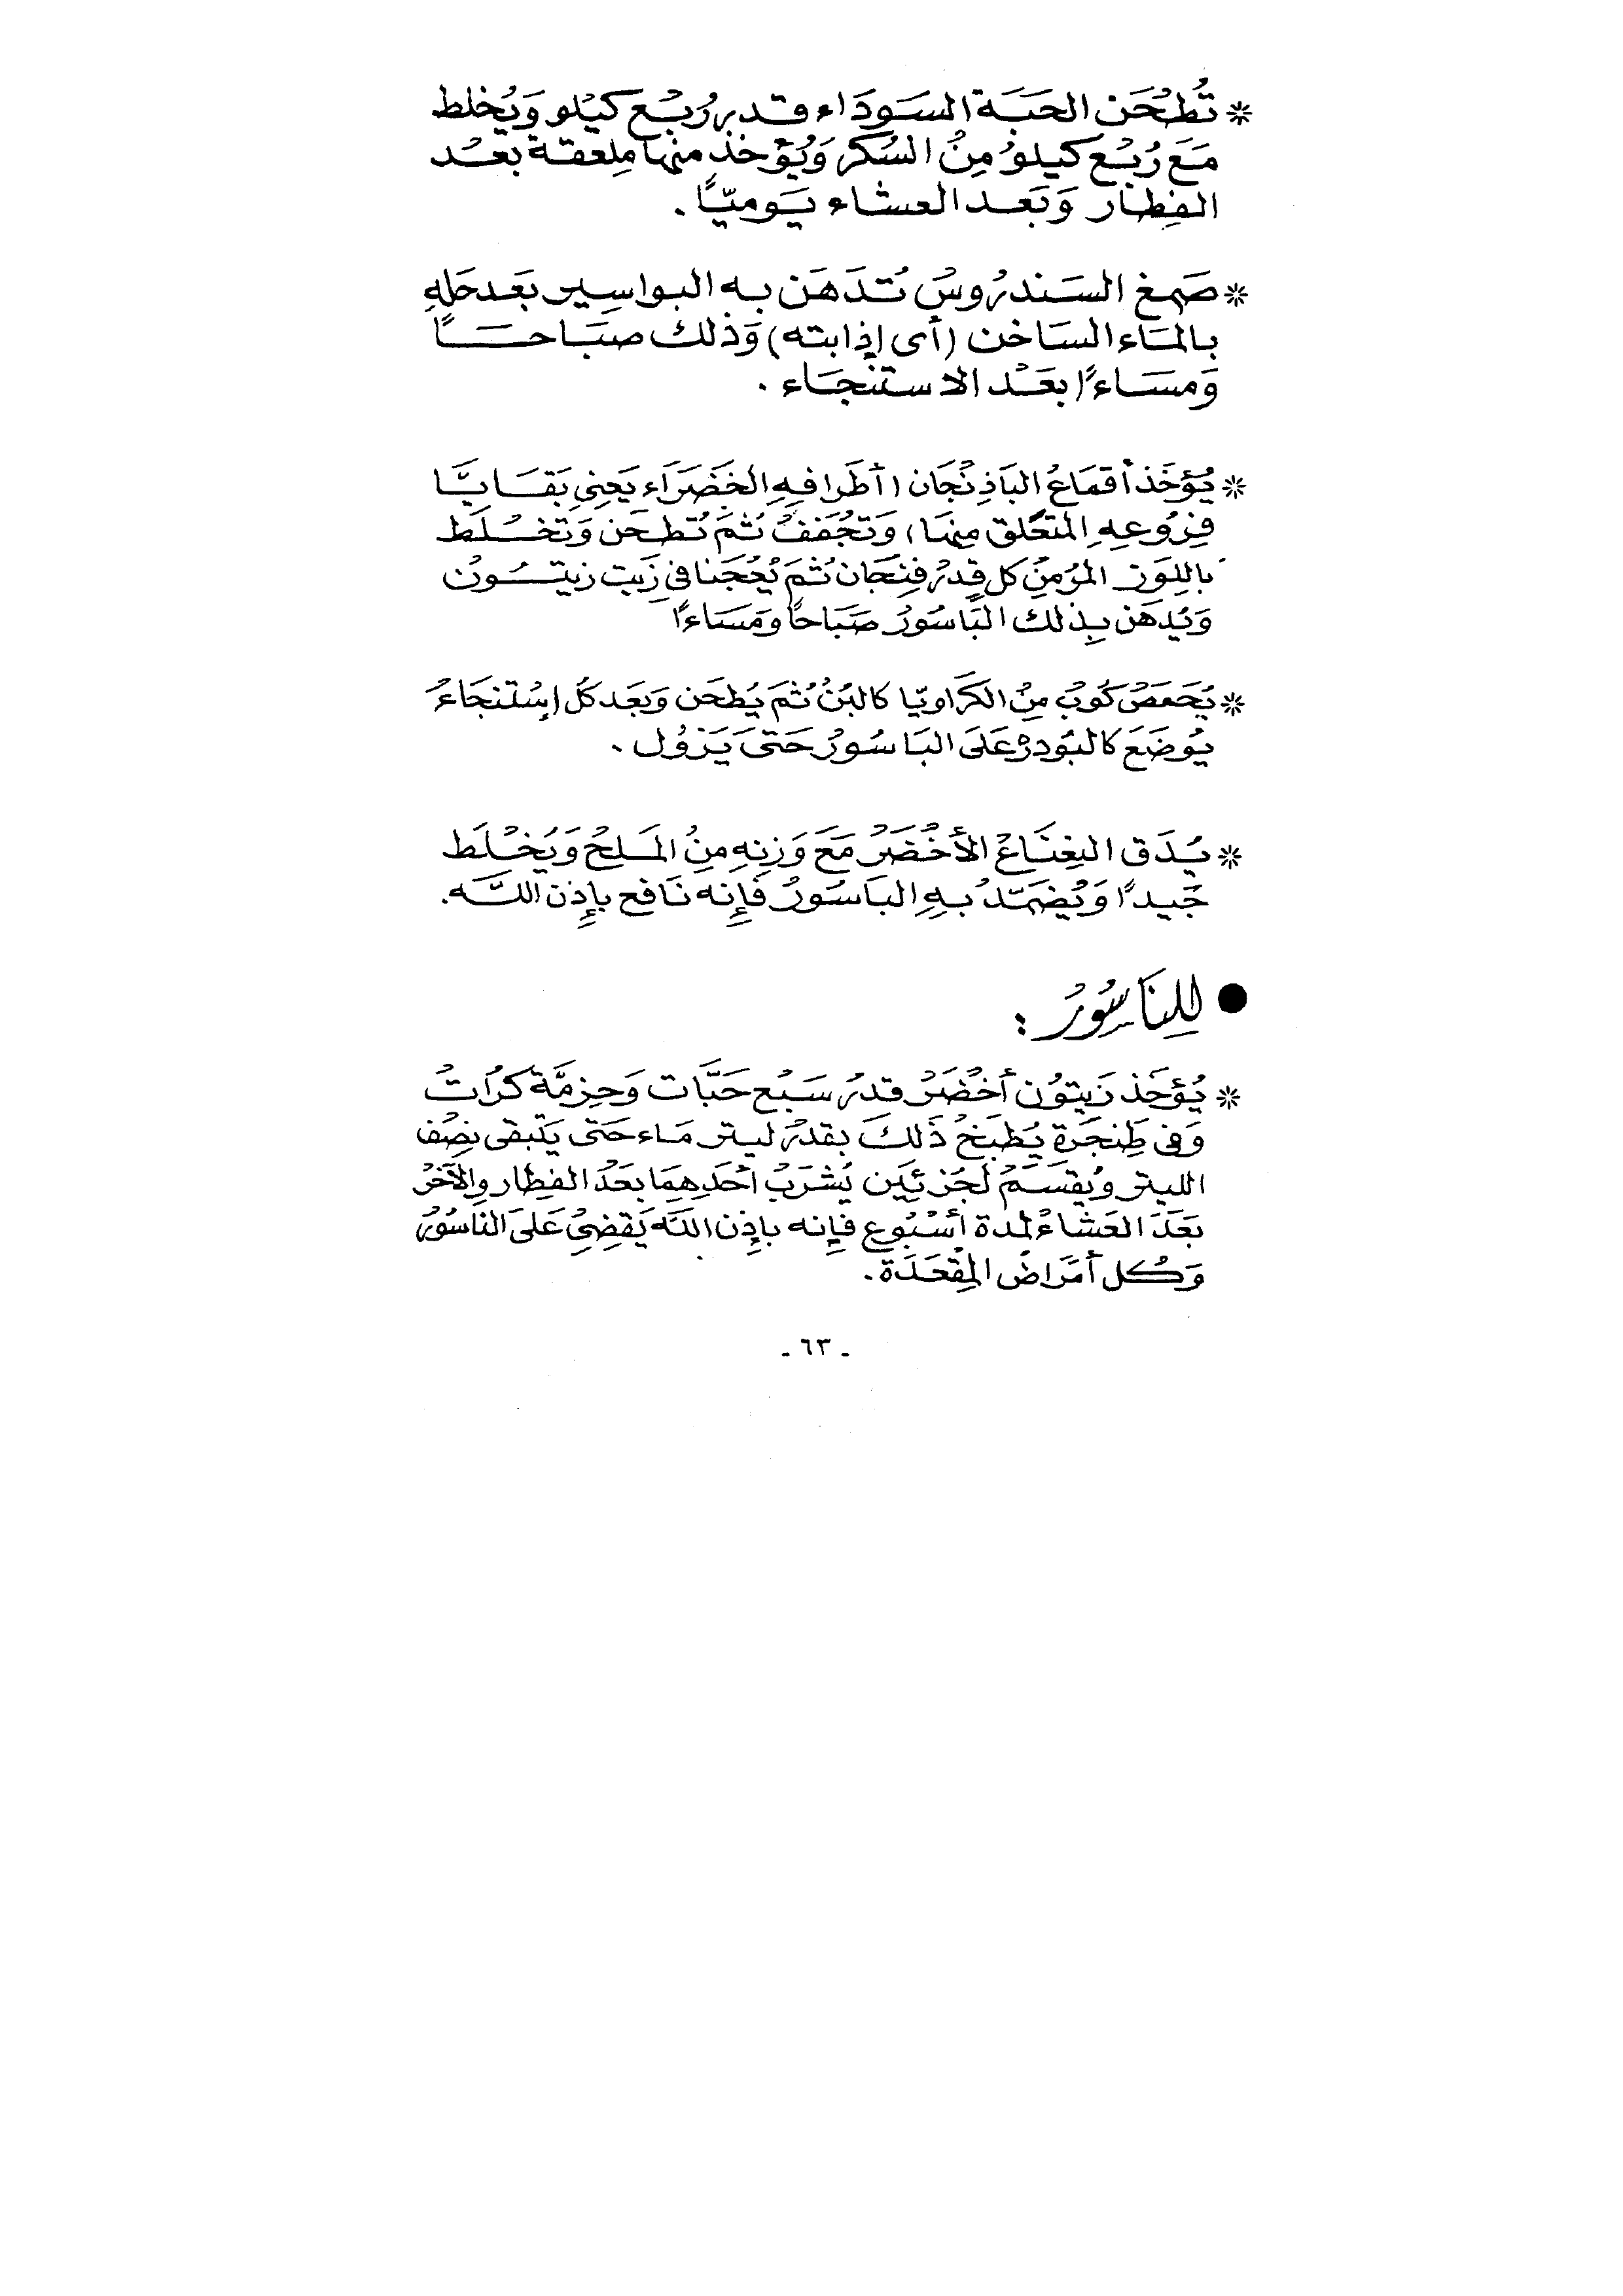 * تُطحَن الحَبَة السَودَاء قدر رُبع كيلو وَيُخلط
مَعَ رُبع كيلو مِن السُكر وَيُؤخذ منها مِلعقة بعد
الفِطار وَبَعد العشاء يَوميّاً .
* صَمغ السَندروس تُدَهَن به البواسِير بَعد حَلِهِ
بالمَاء السَاخن (أى إذابته) وَذلك صبَاحـاً
وَمسَاءً ا بعَد الاستنجَاء .
* يُؤخَذ أقمَاعُ البَاذِنُجَان (أطَرافِهِ الخَضَرَاء يَعِني بَقَايَا
فِرُوعِهِ المتَعَلق مِنهَا) وَتجُفَفُ ثُمَ تُطحَن وَتخلَط
باللِوَز المرُ مِنُ كل قِدرُ فِنجَان ثُمَ يُعُجَنا في زَيت زيتـون
وَيُدهَن بِذلك البَاسُورُ صَبَاحاً ومَسَاءً ا
* يُحَمَصُ كُوبُ مِنُ الكَرَاويَا كالبُنُ ثُمَ يُطحَن وَبعَد كُل إستنجَاءُ
يُوضَعَ كالبُودرهُ عَلىَ البَاسُورُ حَتىَ يَزوُل .
* يُدَق النِعنَاعُ الأخُضَرُ مَعَ وَزنِهِ مِنُ المَلحُ وَيُخلَط
جَيداً وَيُضمّدُ بهِ البَاسَورُ فَإِنه نَافع بإِذن اللَّه.
● للِنَاسُورُ :
* يُؤخَذ زَيتوُن أخُضَرُ قدرُ سَبُع حَبَّات وَحِزمَّة كرُاتُ
وَفى طِنجَرة يُطبَخُ ذَلكَ بقدرُ ليتر مَاء حَتى يَتبقى نِصُف
الليتر وُيقسَمُ لجُزئَين يُشرَبُ أحَدِهمَا بَعَدُ الفِطار والآخرُ
بَعَدَ العَشاءُ لمدة أسُبُوع فإِنه بإِذن اللّه يَقضِيُ عَلىَ الناسُورُ
وَكُل أمَرَاضُ المِقعَدَة .
- ٦٣ -